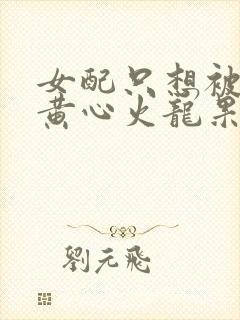 女配只想被
黄心火龍果
劉元飛